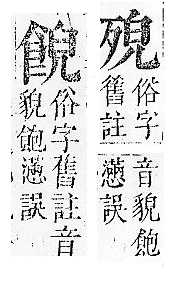 俗字
舊註
音貌飽
懣誤
俗字舊註音
貌飽懣誤